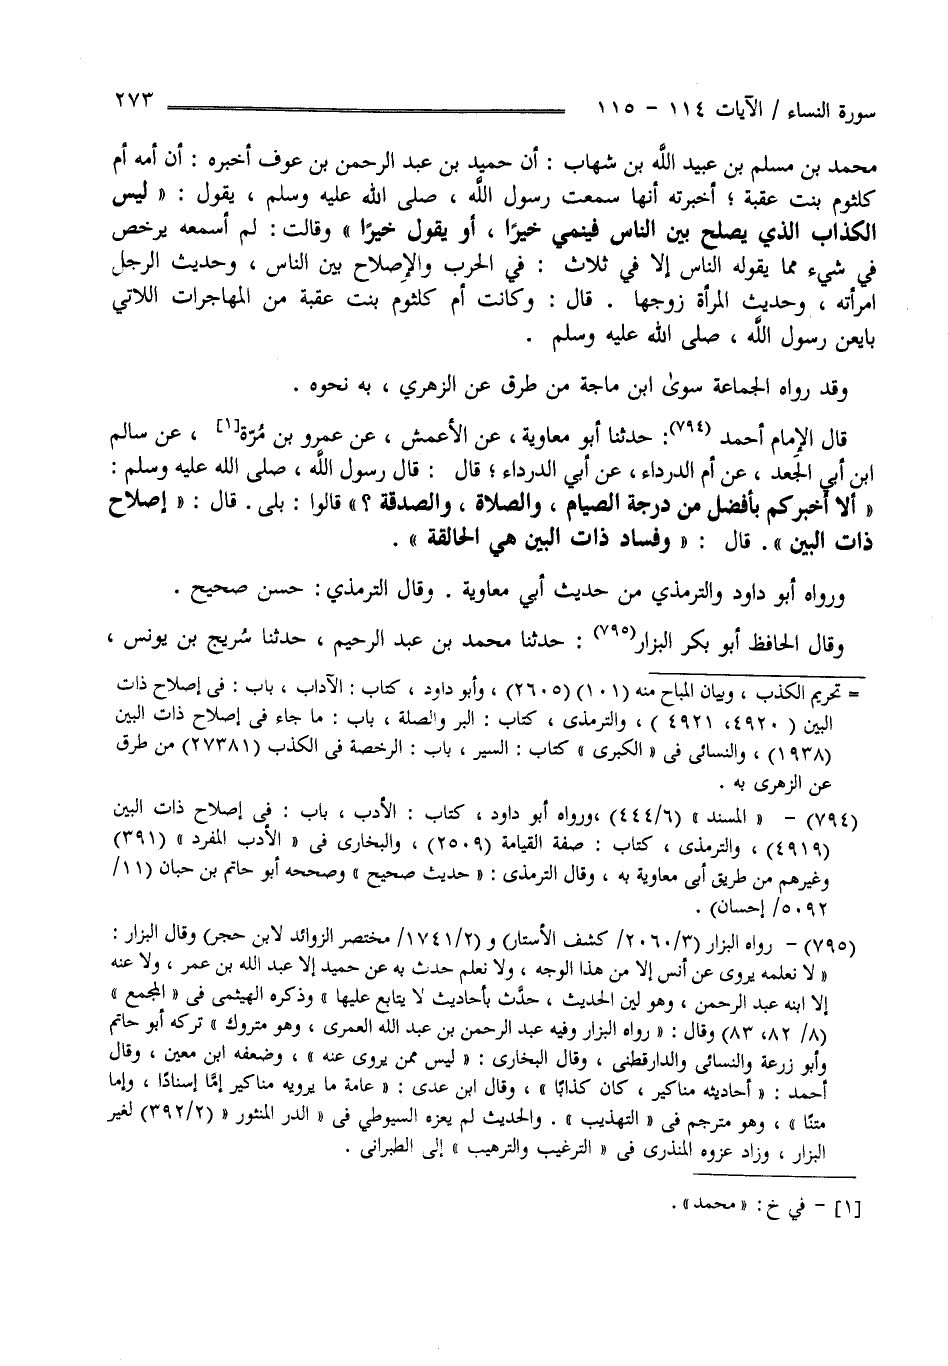 سورة النساء / الآيات ١١٤ - ١١٥ ٢٧٣
محمد بن مسلم بن عبيد اللَّه بن شهاب : أن حميد بن عبد الرحمن بن عوف أخبره : أن أمه أم
كلثوم بنت عقبة ؛ أخبرته أنها سمعت رسول اللَّه ، صلى الله عليه وسلم ، يقول : « ليس
الكذاب الذي يصلح بين الناس فينمي خيرًا ، أو يقول خيرًا » وقالت : لم أسمعه يرخص
في شيء مما يقوله الناس إلا في ثلاث : في الحرب والإصلاح بين الناس ، وحديث الرجل
امرأته ، وحديث المرأة زوجها . قال : وكانت أم كلثوم بنت عقبة من المهاجرات اللاتي
بايعن رسول اللَّه ، صلى الله عليه وسلم .
وقد رواه الجماعة سوىٰ ابن ماجة من طرق عن الزهري ، به نحوه .
قال الإمام أحمد (٧٩٤): حدثنا أبو معاوية ، عن الأعمش ، عن عمرو بن مُرّة[١] ، عن سالم
ابن أبي الجَعد ، عن أم الدرداء ، عن أبي الدرداء ؛ قال : قال رسول اللَّه ، صلى الله عليه وسلم :
« ألا أخبركم بأفضل من درجة الصيام ، والصلاة ، والصدقة ؟ » قالوا : بلى . قال : « إصلاح
ذات البين ». قال : « وفساد ذات البين هي الحالقة » .
ورواه أبو داود والترمذي من حديث أبي معاوية . وقال الترمذي : حسن صحيح .
وقال الحافظ أبو بكر البزار(٧٩٥) : حدثنا محمد بن عبد الرحيم ، حدثنا سُريج بن يونس ،
= تحريم الكذب ، وبيان المباح منه (١٠١) (٢٦٠٥) ، وأبو داود ، كتاب : الآداب ، باب : فى إصلاح ذات
البين ( ٤٩٢٠، ٤٩٢١ ) ، والترمذى ، كتاب : البر والصلة ، باب : ما جاء فى إصلاح ذات البين
(١٩٣٨) ، والنسائى فى « الكبرى » كتاب : السير ، باب : الرخصة فى الكذب (٢٧٣٨١) من طرق
عن الزهرى به .
(٧٩٤) - « المسند » (٤٤٤/٦) ،ورواه أبو داود ، كتاب : الأدب ، باب : فى إصلاح ذات البين
(٤٩١٩) ، والترمذى ، كتاب : صفة القيامة (٢٥٠٩) ، والبخارى فى « الأدب المفرد » (٣٩١)
وغيرهم من طريق أبى معاوية به ، وقال الترمذى : « حديث صحيح » وصححه أبو حاتم بن حبان (١١/
٥٠٩٢/ إحسان) .
(٧٩٥) - رواه البزار (٢٠٦٠/٣/ كشف الأستار) و (١٧٤١/٢/ مختصر الزوائد لابن حجر) وقال البزار :
« لا نعلمه يروى عن أنس إلا من هذا الوجه ، ولا نعلم حدث به عن حميد إلا عبد الله بن عمر ، ولا عنه
إلا ابنه عبد الرحمن ، وهو لين الحديث ، حدَّث بأحاديث لا يتابع عليها » وذكره الهيثمى فى « المجمع »
(٨/ ٨٢، ٨٣) وقال : « رواه البزار وفيه عبد الرحمن بن عبد الله العمرى ، وهو متروك » تركه أبو حاتم
وأبو زرعة والنسائى والدارقطنى ، وقال البخارى : « ليس ممن يروى عنه » ، وضعفه ابن معين ، وقال
أحمد : « أحاديثه مناكير ، كان كذابًا » ، وقال ابن عدى : « عامة ما يرويه مناكير إمَّا إسنادًا ، وإما
متنًا » ، وهو مترجم فى « التهذيب » . والحديث لم يعزه السيوطي فى « الدر المنثور » (٣٩٢/٢) لغير
البزار ، وزاد عزوه المنذرى فى « الترغيب والترهيب » إلى الطبرانى .
[١] - في خ : « محمد» .